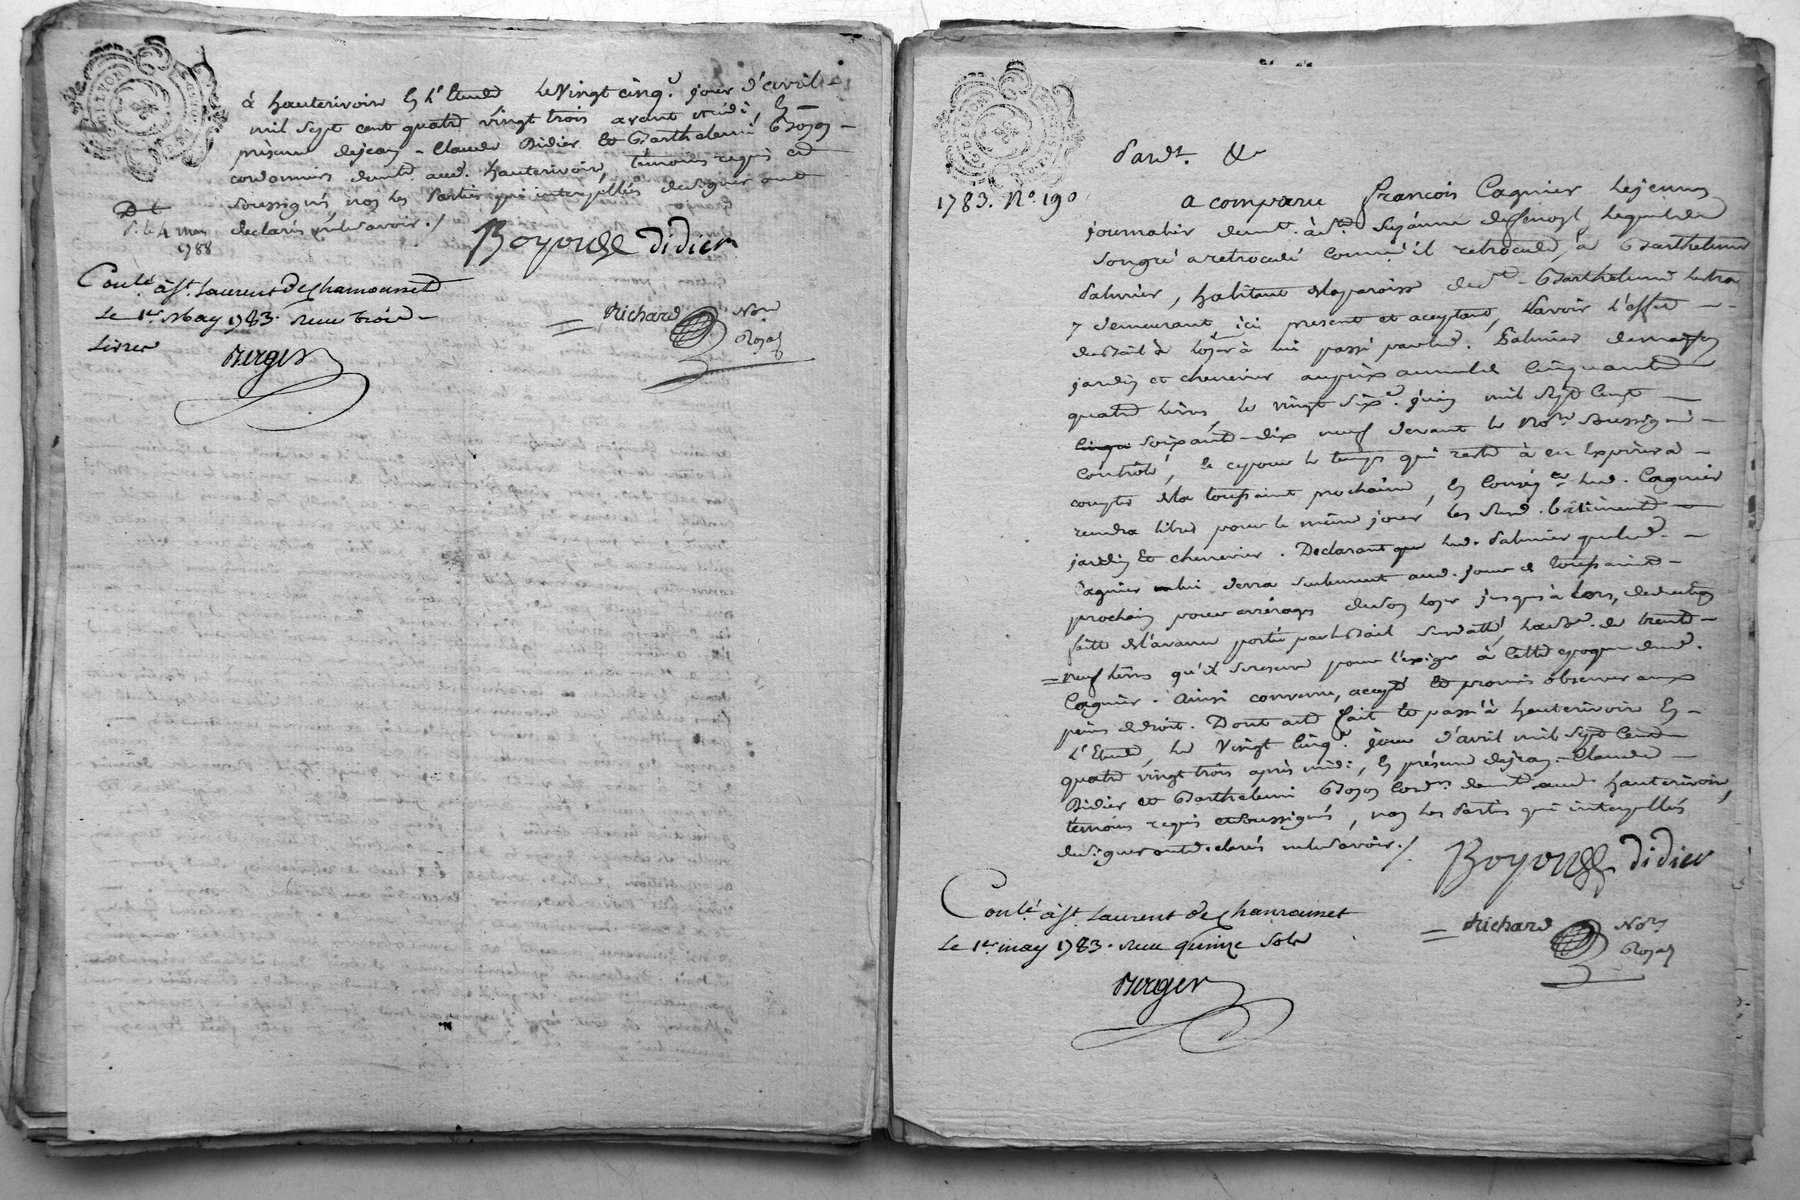 à hauterivoir En l'Etude le vingt cinq.e jour d'avril
mil sept cent quatre vingt trois avant midi, En
présence de jean-Claude Didier Et Barthelemi Boyou
cordonniers demt. aud. hauterivoir, témoins requis et
soussignés, non les Parties qui interpellés de signer ont
declaré ne le savoir ./.
Dt.
4 mars
1788
Boyoud Didier
Conlé. à st. Laurent de Chamousset
Le 1er May 1783. Reçu trois
Livres
Berger
Richard Nore.
Royal
Pardt. &c
1783. No. 190
a comparu françois Cagnier le jeune
journalier demt. à Ste.
son gré a retrocedé comme il retrocede, à Barthelemi
Palmier, habitant de la paroisse de
y demeurant, ici present et aceptant, savoir l'effet
du Bail à loyer à lui passé par led. Palmier de maison
jardin et chenevier au prix annuel de Cinquante
quatre livres le vingt six.e juin mil sept Cent
soixante-dix neuf devant le Nore. soussigné
Controlé, & ce pour le temps qui reste à en Expirer à
compter de la toussaint prochaine, En Conséqce. led. Cagnier
rendra libre pour le même jour les susd. bâtiments
jardin Et chenevier. Declarant que led. Palmier que led.
Cagnier lui devra seulement aud. jour de toussaint
prochain pour arrérages de son loyer jusques à lors, deduction
faite de l'avance portée par le Bail susdatté, la so. de trente
neuf livres qu'il se reserve pour l'exiger à Cette epoque dud.
Cagnier. Ainsi convenu, acepté Et promis observer aux
peines de droit. Dont acte fait Et passé à hauterivoir En
l'Etude, le vingt Cinq.e jour d'avril mil sept Cent
quatre vingt trois après midi, En présence de jean-Claude
Didier et Barthelemi Boyou Cordrs. demt. aud. hauterivoir,
témoins requis et soussignés, non les Parties qui interpellés
de signer ont declaré ne le savoir ./.
Boyoud Didier
Conlé. à st. Laurent de Chamousset
Le 1er may 1783. Reçu quinze sols
Berger
Richard Nore.
Royal